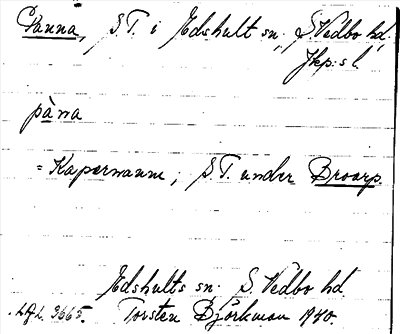 Panna, S.T. i Edshult sn, S. Vedbo hd,
Jkp:s l.
pàna
= Kopparnanne, S.T. under Broarp.
Edshults sn. S. Vedbo hd.
Torsten Björkman 1940.